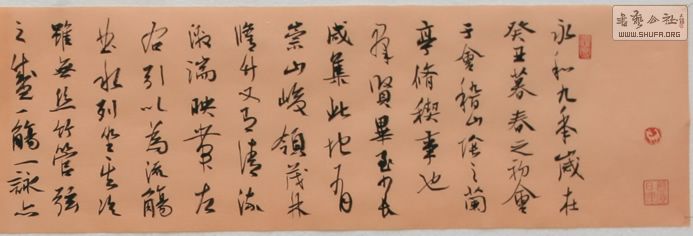 永和九年歲在
癸丑暮春之初會
于會稽山陰之蘭
亭脩稧事也
羣賢畢至少長
咸集此地有
崇山峻領茂林
脩竹又有清流
激湍映帶左
右引以為流觴
曲水列坐其次
雖無絲竹管弦
之盛一觴一詠亦
書藝公社
WWW.SHUFA.ORG